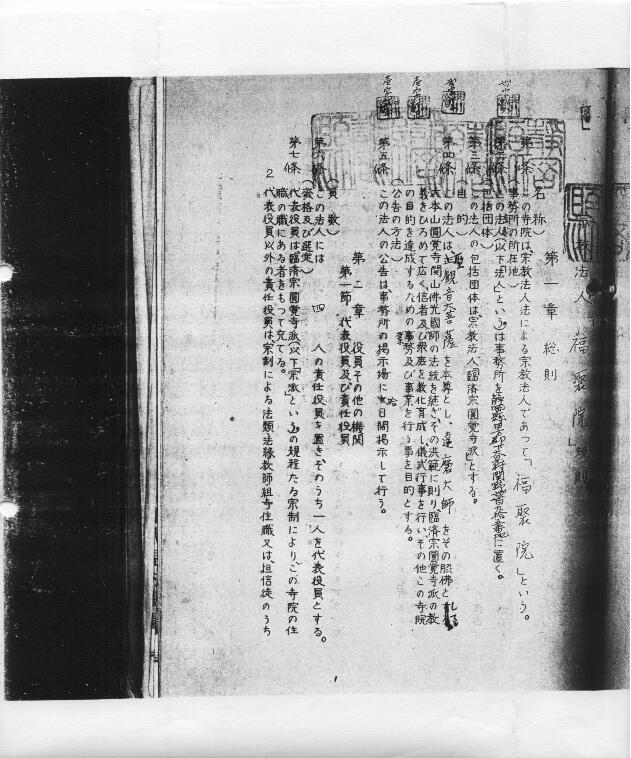 法人「福聚院」規則
第一章 総則
(名称)
第一条 この寺院は、宗教法人法による宗教法人であって「福聚院」という。
(事務所の所在地)
第二条 この法人(以下「法人」という)は事務所を に置く。
(包括団体)
第三条 この法人の包括団体は、宗教法人「臨済宗圓覚寺派」とする。
(目的)
第四条 この法人は、観音大菩薩を本尊とし、達磨大師をその脇佛とし
大本山圓覚寺開山佛光國師の法統を継ぎその洪範に則り臨済宗圓覚寺派の教
義をひろめて広く信者及び衆庶を教化育成し、儀式行事を行い、その他この寺院
の目的を達成するための業務及び事業を行う事を目的とする。
(公告の方法)
第五条 この法人の公告は事務所の掲示場に拾日間掲示して行う。
第二章 役員その他の機関
第一節 代表役員及び責任役員
(員数)
第六条 この法人には 四 人の責任役員を置きそのうち一人を代表役員とする。
(資格及び選定)
第七条 代表役員は臨済宗圓覚寺派(以下「宗派」という)の規程たる宗制によりこの寺院の住
職の職にある者をもって充てる。
2 代表役員以外の責任役員は宗制による法類法縁教師組寺住職又は、担信徒のうち
1